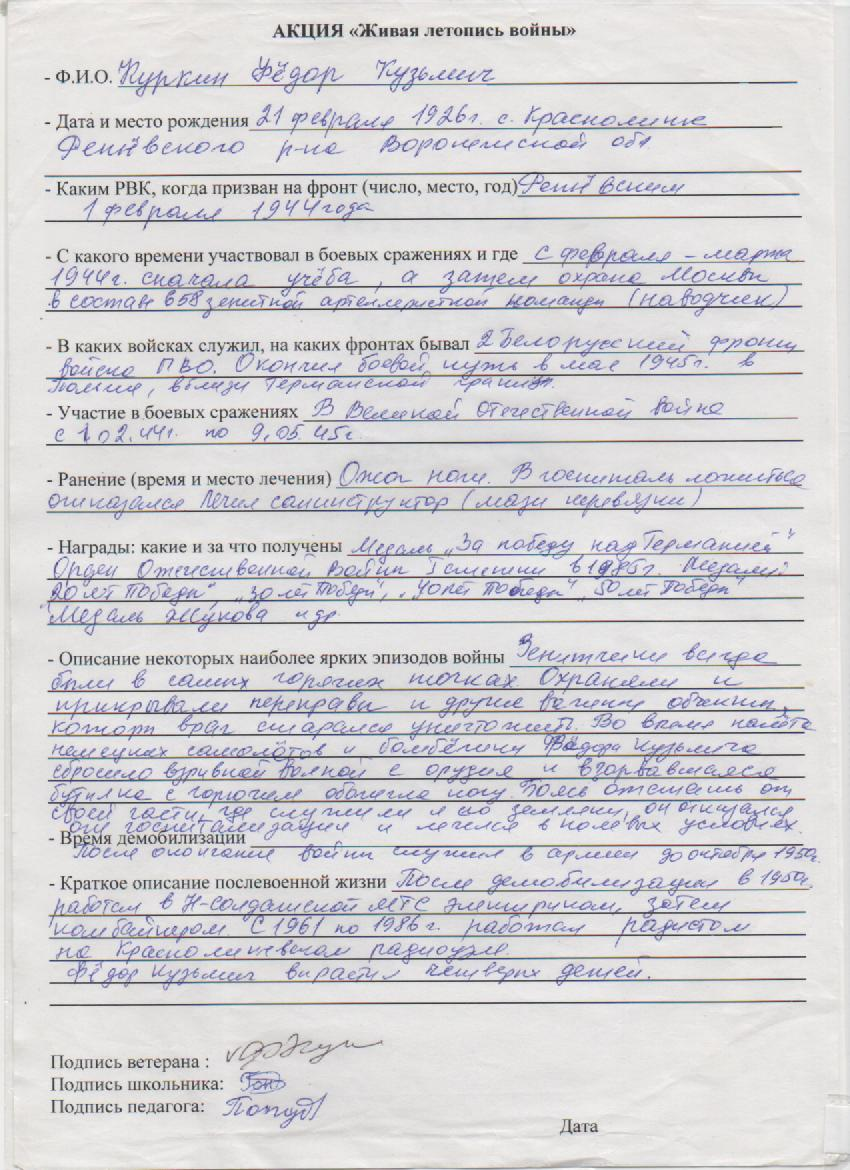 АКЦИЯ «Живая летопись войны»
- Ф.И.О. Куркин Фёдор Кузьмич
- Дата и место рождения 21 февраля 1926г. с. Краснолипье
Репьёвского р-на Воронежской обл.
- Каким РВК, когда призван на фронт (число, место, год) Репьёвским
1 февраля 1944 года
- С какого времени участвовал в боевых сражениях и где с февраля – марта
1944г. сначала учёба, а затем охрана Москвы
в составе 658 зенитной артеллеристной команды (наводчик)
- В каких войсках служил, на каких фронтах бывал 2 Белорусский фронт
войска ПВО. Окончил боевой путь в мае 1945г. в
Польше, вблизи Германской границы.
- Участие в боевых сражениях В Великой Отечественной война
с 1.02.44г. по 9.05.45г.
- Ранение (время и место лечения) Ожог ноги. В госпиталь ложиться
отказался Лечил санинструктор (мази перевязки)
- Награды: какие и за что получены Медаль "За победу над Германией"
Орден Отечественной Войны I степени в 1985г. Медали:
"20 лет Победы", "30 лет Победы", "40 лет Победы" "50 лет Победы"
Медаль Жукова и др.
- Описание некоторых наиболее ярких эпизодов войны Зенитчики всегда
были в самых горячих точках Охраняли и
прикрывали переправы и другие важные объекты,
которые враг старался уничтожить. Во время налёта
немецких самолётов и бомбёжки Фёдора Кузьмича
сбросило взрывной волной с орудия и взорвавшаяся
бутылка с горючем обожгла ногу. Боясь отстать от
своей части, где служили его земляки, он отказался
от госпитализации и лечился в полевых условиях.
- Время демобилизации
После окончание войны служил в армии до октября 1950г.
- Краткое описание послевоенной жизни После демобилизации в 1950г.
работал в Н-Солдатской МТС электриком, затем
комбайнером. С 1961 по 1986г. работал радистом
на Краснолипьевском радиоузле.
Фёдор Кузьмич вырастил четверых детей.
Подпись ветерана :
Подпись школьника:
Подпись педагога:
Дата